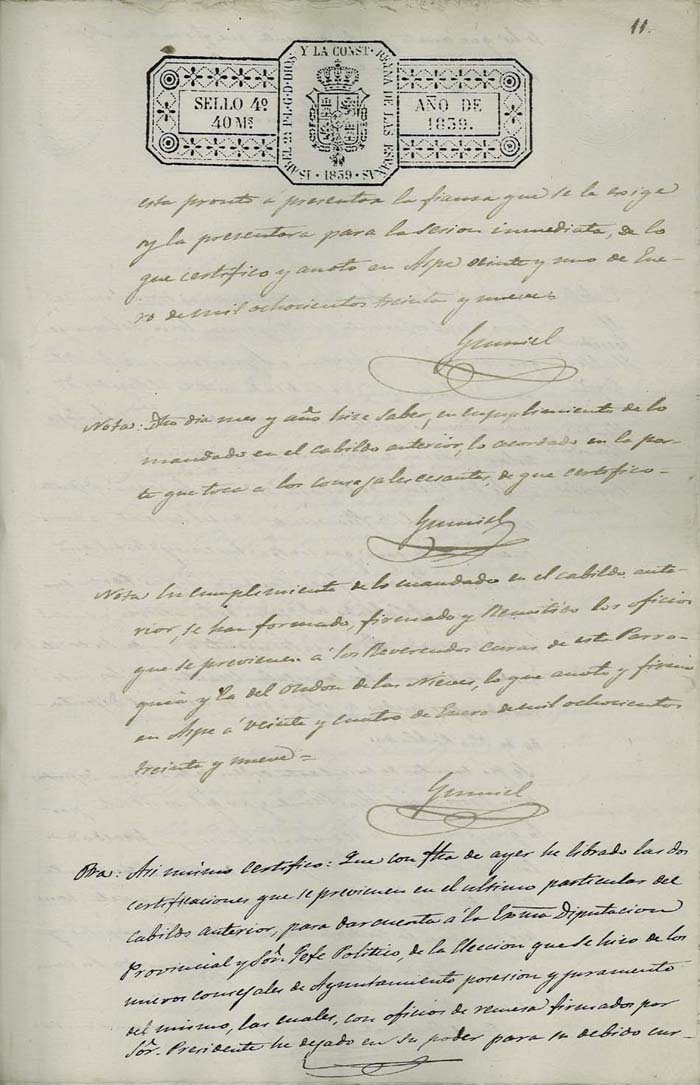 11.
SELLO 4º
40 Mˢ
ISABEL 2ª P.L.G.D.DIOS Y LA CONST. REINA DE LAS ESPAÑAS
·1839·
AÑO DE
1839.
esta pronto á presentar la fianza que se le exige
y la presentara para la sesion inmediata, de lo
que certifico y anoto en Aspe veinte y uno de Ene-
ro de mil ochocientos treinta y nueve=
Gumiel
Nota: Dho dia mes y año hice saber, en cumplimiento de lo
mandado en el cabildo anterior, lo acordado en la par-
te que toca a los consejales cesantes, de que certifico-
Gumiel
Nota En cumplimiento de lo mandado en el cabildo ante-
rior, se han formado, firmado y Remitido los oficios
que se previenen á los Reverendos curas de esta Parro-
quia y la del Ondon de las Nieves, lo que anoto y firmo
en Aspe á veinte y cuatro de Enero de mil ochocientos
treinta y nueve=
Gumiel
Otra: Asi mismo certifico: Que con fha de ayer he librado las dos
certificaciones que se previenen en el ultimo particular del
Cabildo anterior, para dar cuenta á la Exma Diputacion
Provincial y Sor. Gefe Politico, de la eleccion que se hizo de los
nuevos consejales de Ayuntamiento posesion y juramento
del mismo, las cuales, con oficios de remesa firmados por
Sor. Presidente he dejado en su poder para su debido cur-